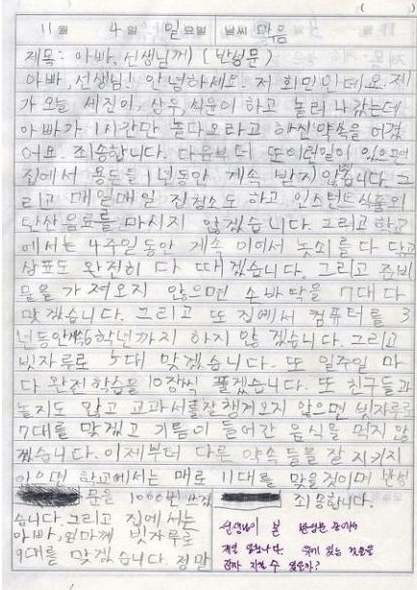 11월 4일 일요일 날씨 맑음
제목: 아빠, 선생님께) (반성문)
아빠, 선생님! 안녕하세요. 저 희민인데요. 제
가 오늘 세진이, 상우, 석운이 하고 놀러 나갔는데
아빠가 1시간만 놀다오라고 하신약속을 어겼
어요. 죄송합니다. 다음부터 또이런일이 있으면
집에서 용돈을 1년동안 계속 받지않습니다. 그
리고 매일매일 집청소도 하고, 인스턴트식품와
탄산음료를 마시지 않겠습니다. 그리고 학교
에서는 4주일동안 계속 이어서 놋쇠를 다 닦고
상표도 완전히 다 따겠습니다. 그리고 준비
물을 가져오지 않으면 손바닥을 7대 다
맞겠습니다. 그리고 또 집에서 컴퓨터를 3
년도안 6학년까지 하지 않겠습니다. 그리고
빗자루로 5대 맞겠습니다. 또 일주일 마
다 완전학습을 10장씩 풀겠습니다. 또 친구들과
놀지도 않고 교과서를잘챙겨오지 않으면 빗자루로
7대를 맞겠고 기름이 들어간 음식을 먹지 않
겠습니다. 이제부터 다른 약속들을 잘 지키지
않으면 학교에서는 매로 11대를 맞을것이며 반성
문을 1000번 쓰겠
습니다. 그리고 집에서는
아빠, 엄마께 빗자루로
9대를 맞겠습니다. 정말
죄송합니다.
선생님이 본 반성문 중에서
제일 입니다. 여기 있는 것들을
감자 지킬 수 있을까?